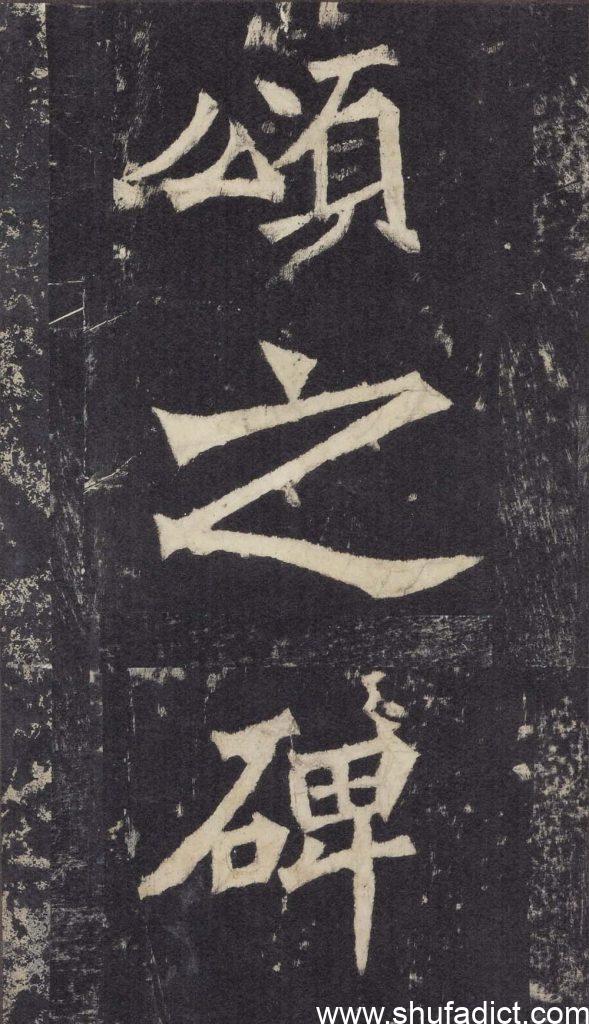 頌之碑
www.shufadict.com